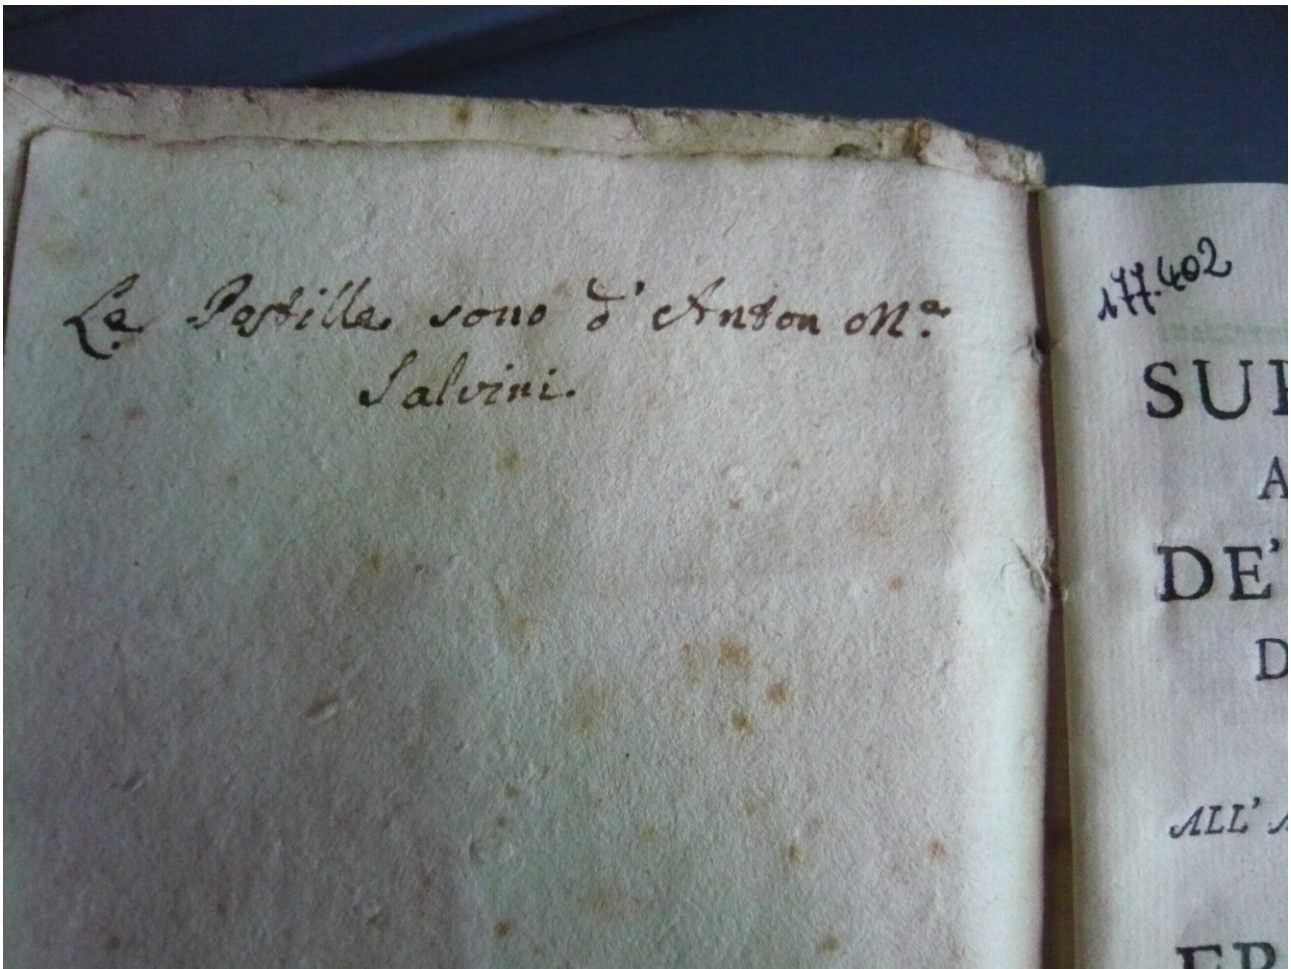 Le Postille sono d' Anton Mª
Salvini.
177.402
SU
A
DE'
D
ALL' A